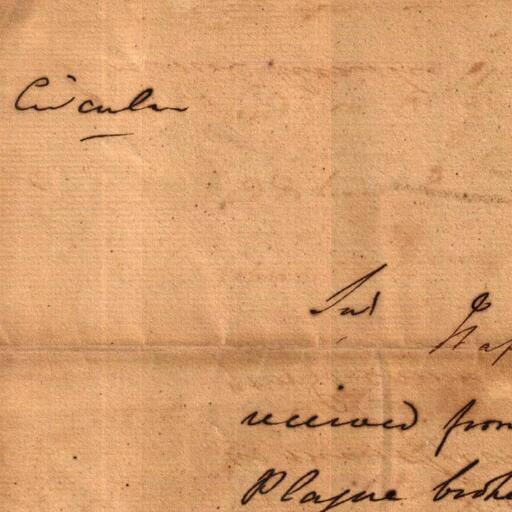 Circular
received from
Plague broke